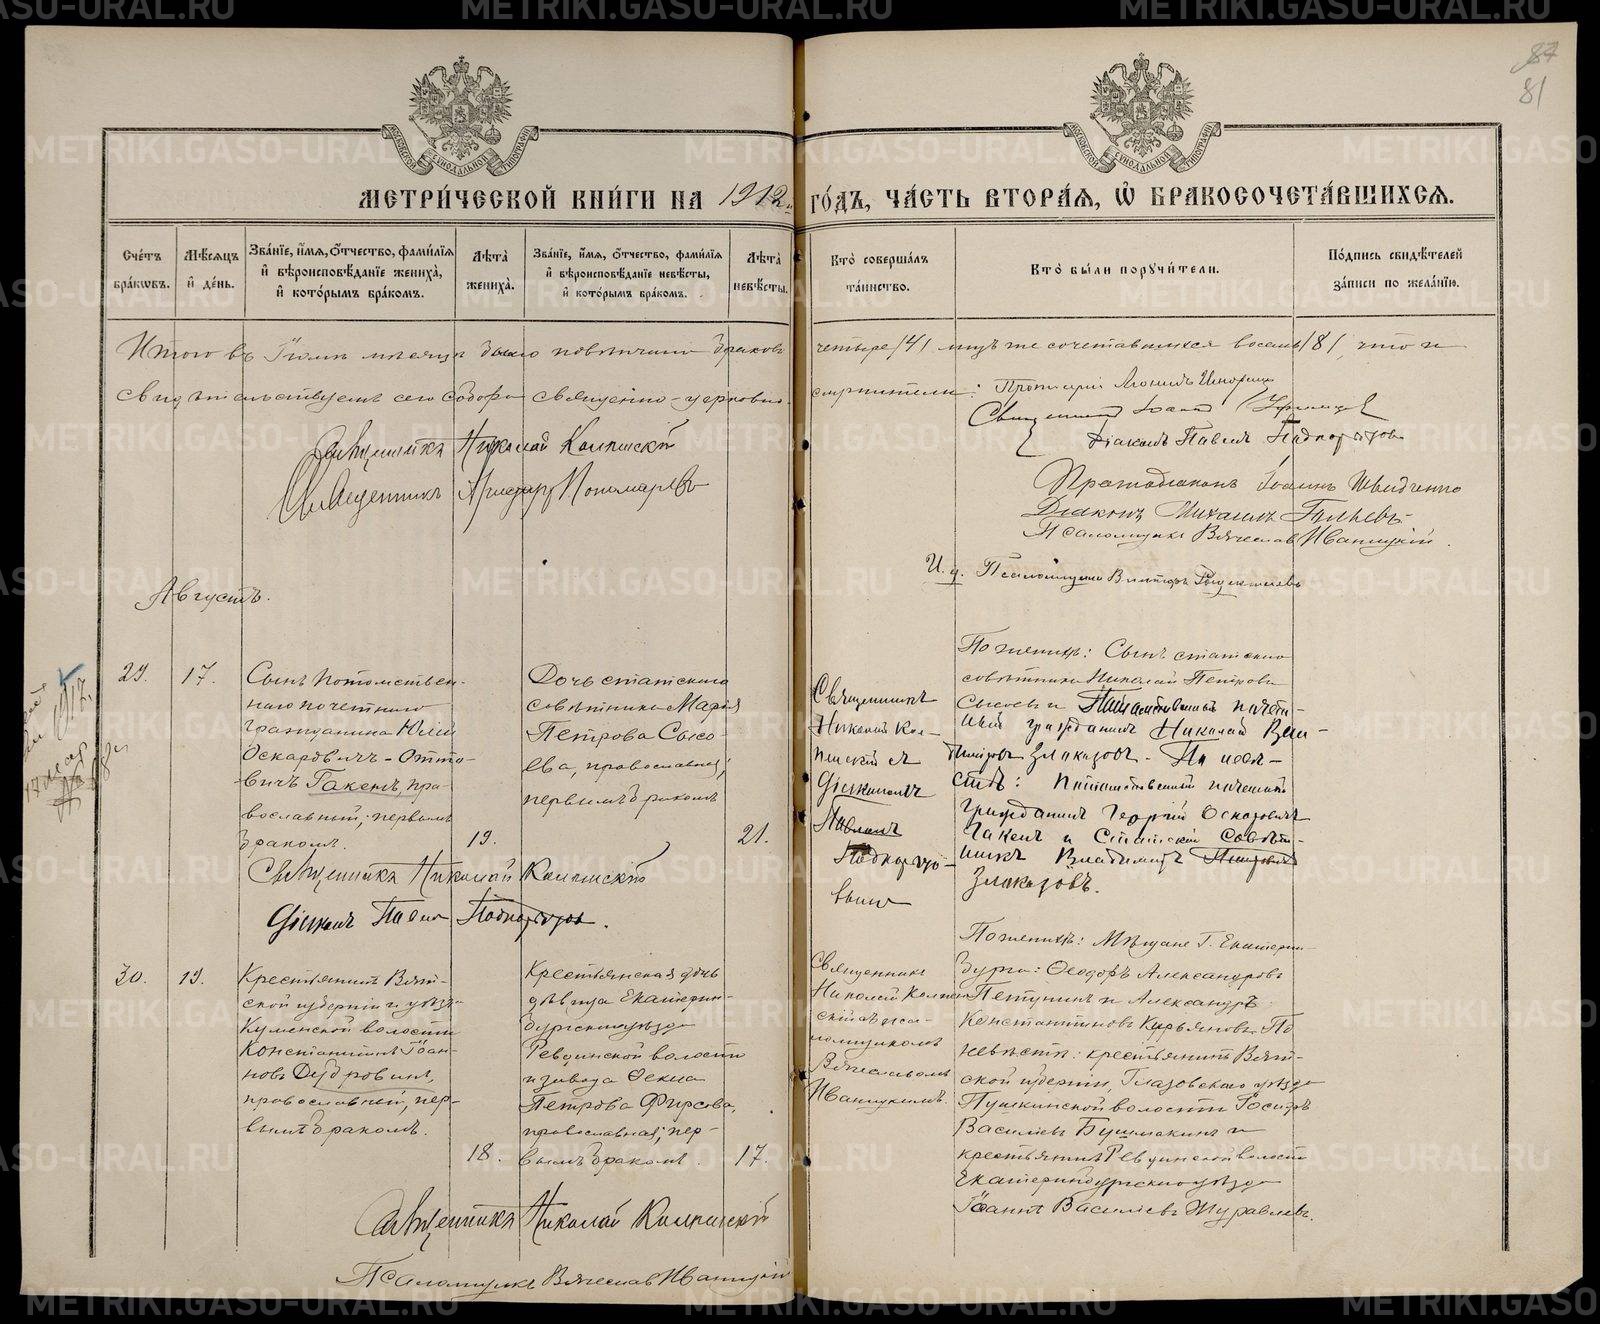 87
81
МОСКОВСКОЙ СѴНОДАЛЬНОЙ ТИПОГРАФІИ
МОСКОВСКОЙ СѴНОДАЛЬНОЙ ТИПОГРАФІИ
МЕТРИ́ЧЕСКОЙ КНИ́ГИ НА 1912 ГО́ДЪ, ЧА́СТЬ ВТОРА́Я, Ѽ БРАКОСОЧЕТА́ВШИХСЯ.
Сче́тъ бра́ковъ.
Мѣ́сяцъ и де́нь.
Зва́нїе, и́мя, о́тчество, фами́лїя и вѣроисповѣ́данїе жениха́, и кото́рымъ бра́комъ.
Лѣта̀ жениха̀.
Зва́нїе, и́мя, о́тчество, фами́лїя и вѣроисповѣ́данїе невѣ́сты, и кото́рымъ бра́комъ.
Лѣта̀ невѣ́сты.
Кто̀ соверша́лъ та́инство.
Кто̀ бы́ли порꙋчи́тели.
По́дпись свидѣ́телей за́писи по жела́нїю.
Итого въ Іюлѣ мѣсяцѣ было повѣнчано браковъ четыре /4/ лицъ же сочетавшихся восемь /8/, что и
свидѣтельствуемъ сего Собора священно-церковно-служители: Протоіерей
Священникъ Іоаннъ
Діаконъ Павелъ Подкорытовъ
Священникъ Николай Колпинскій
Священникъ Пономаревъ
Протодіаконъ Іоаннъ Швидченко
Діаконъ Михаилъ
Псаломщикъ Вячеславъ Иваницкій.
И. д. Псаломщика Викторъ
Августъ.
29.
17.
Сынъ потомствен-
наго почетнаго
гражданина Юлій
Оскаровичъ-Отто-
вичъ Гакенъ, пра-
вославный; первымъ
бракомъ.
19.
Дочь статскаго
совѣтника Марія
Петрова Сысо-
ева, православная;
первымъ бракомъ
21.
Священникъ
Николай Кол-
пинскій съ
Діакономъ
Павломъ
Подкорыто-
вымъ
По женихѣ: Сынъ статскаго
совѣтника Николай Петровъ
Сысоевъ и Потомственный почет-
ный гражданинъ Николай Вла-
диміровъ Злоказовъ. По невѣ-
стѣ: Потомственный почетный
гражданинъ Георгій Оскаровичъ
Гакенъ и Статскій Совѣт-
никъ Владимиръ Петровичъ
Злоказовъ.
Священникъ Николай Колпинскій
Діаконъ Павелъ Подкорытовъ.
30.
19.
Крестьянинъ Вят-
ской губерніи и уѣзда
Куменской волости
Константинъ Іоан-
новъ Дудровинъ,
православный, пер-
вымъ бракомъ.
18.
Крестьянская дочь
дѣвица Екатерин-
бургскаго уѣзда
Ревдинской волости
и завода Ѳекла
Петрова Фирсова,
православная; пер-
вымъ бракомъ.
17.
Священникъ
Николай Колпин-
скій съ пса-
ломщикомъ
Вячеславомъ
Иваницкимъ.
По женихѣ: Мѣщане г. Екатерин-
бурга: Ѳеодоръ Александровъ
Петунинъ и Александръ
Константиновъ Кирьяновъ. По
невѣстѣ: крестьянинъ Вят-
ской губерніи, Глазовскаго уѣзда
Пушкинской волости Іосифъ
Василіевъ Бушмакинъ и
крестьянинъ Ревдинской волости
Екатеринбургскаго уѣзда
Іоаннъ Василіевъ Журавлевъ.
Священникъ Николай Колпинскій
Псаломщикъ Вячеславъ Иваницкій